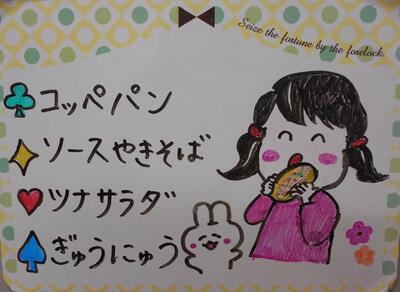 Seize the fortune by the forelock.
コッペパン
ソースやきそば
ツナサラダ
ぎゅうにゅう